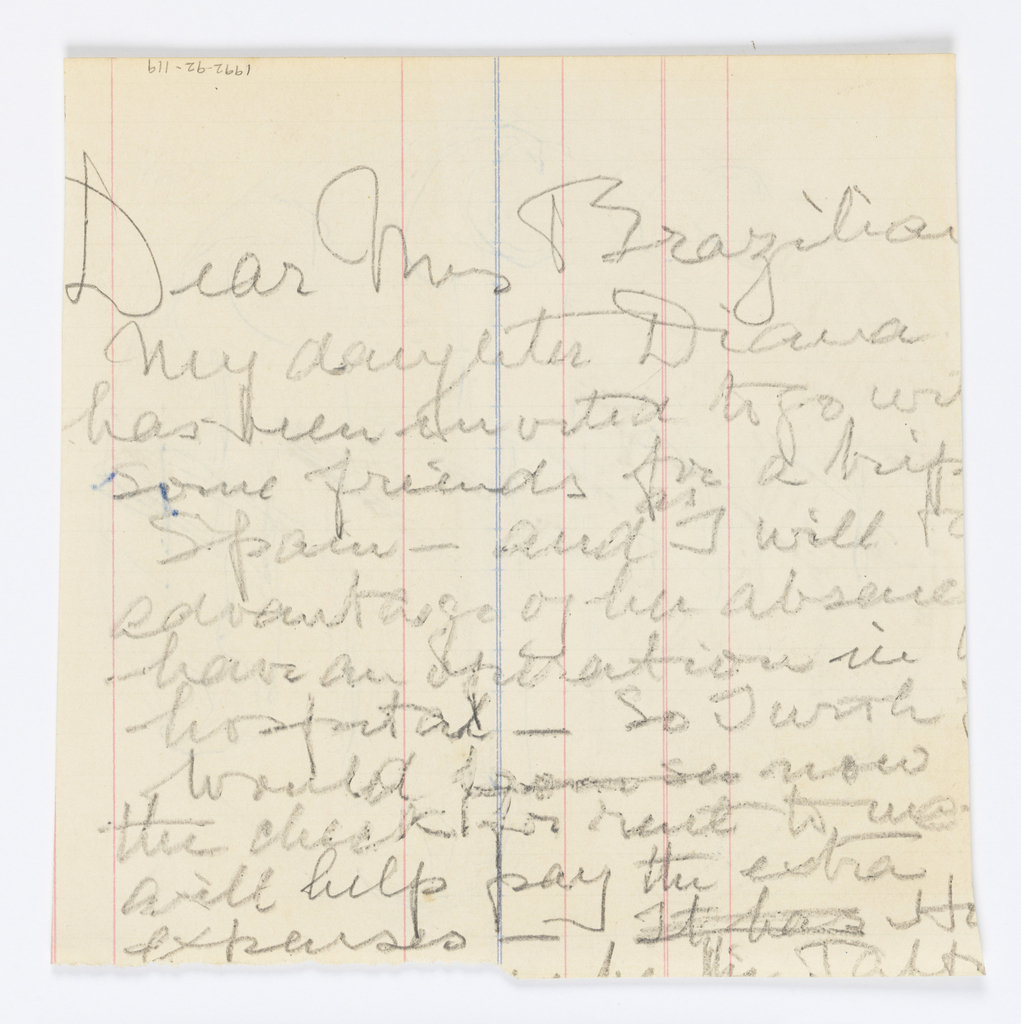 1992-92-119
Dear Mrs Brazilian
My daughter Diana
has been invited to go wi
some friends for a trip
Spain — and as I will ta
advantage of her absence
have an operation in
hospital — So I wish
would now
the check for rent to me
will help pay the extra
expenses — It has Ho
be the Taft